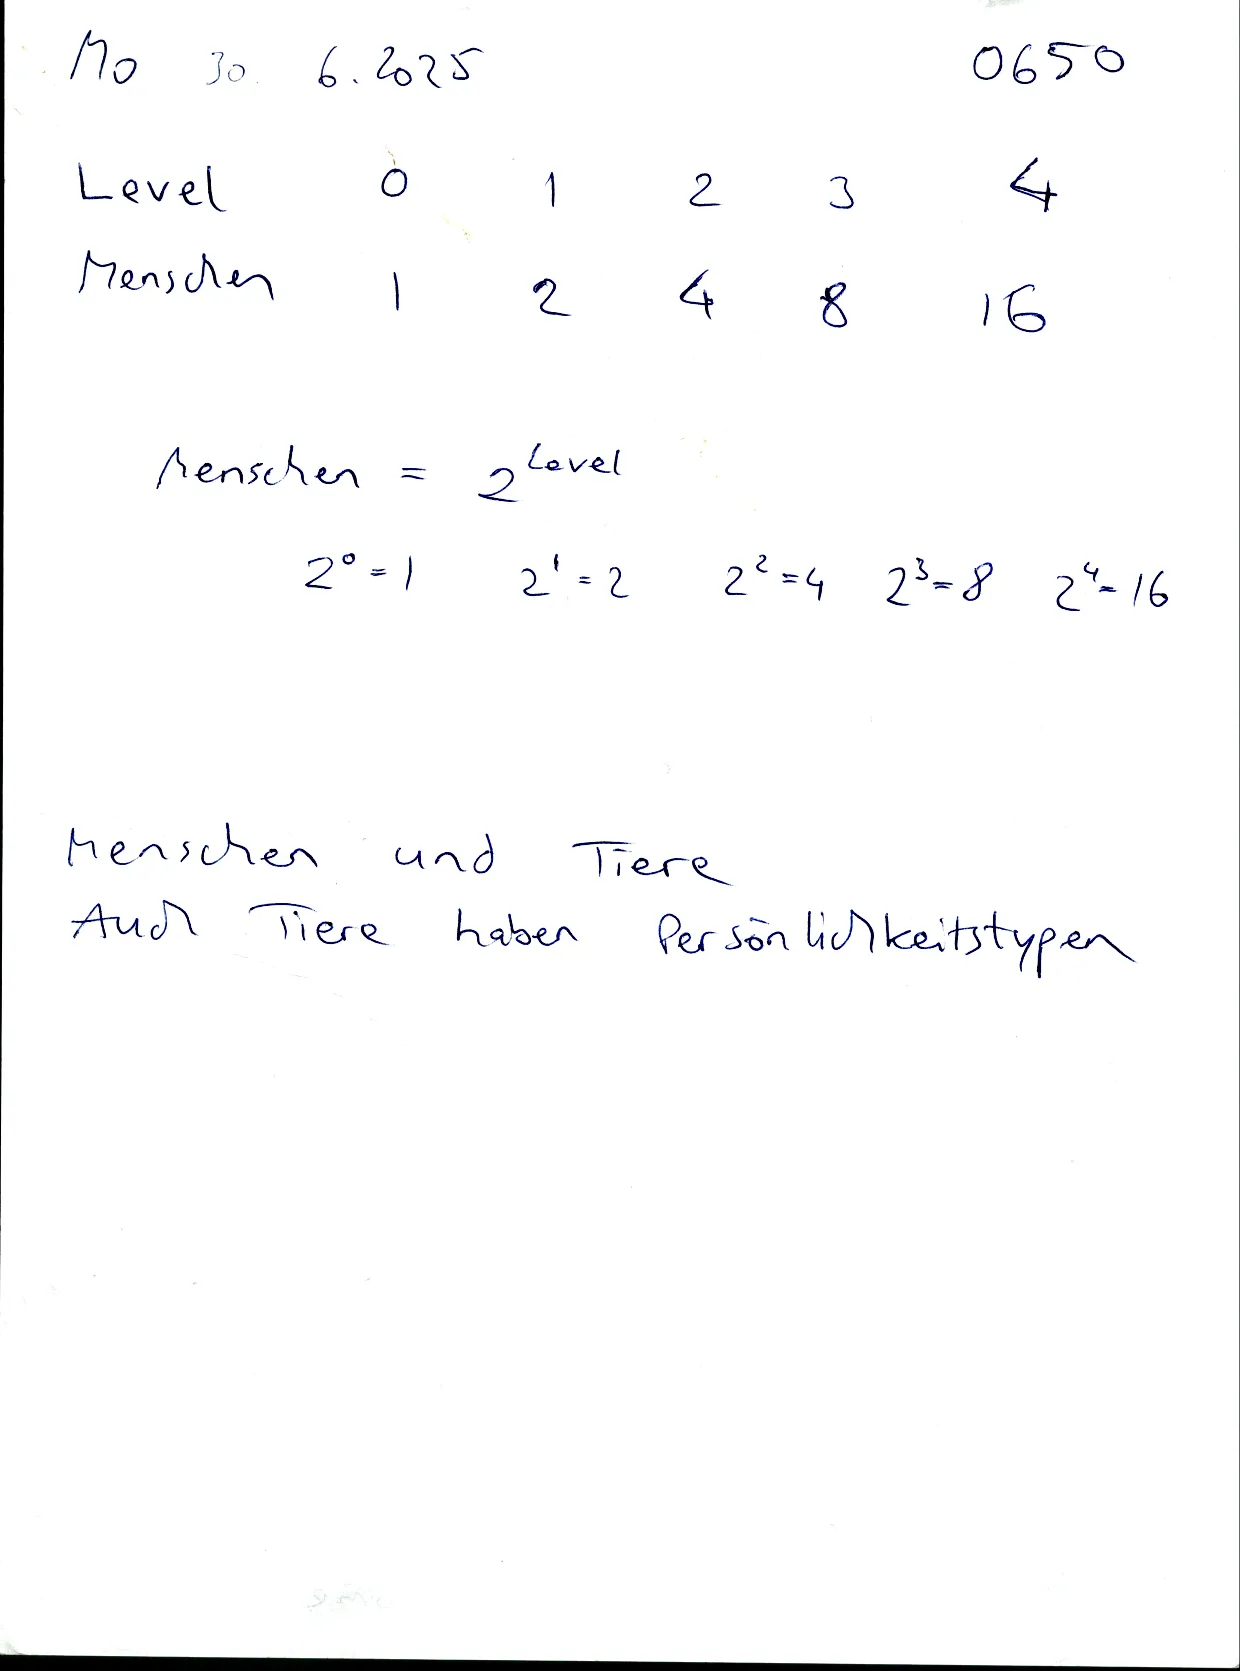 Mo 30. 6. 2025 0650
Level 0 1 2 3 4
Menschen 1 2 4 8 16
Menschen = 2^Level
2^0 = 1 2^1 = 2 2^2 = 4 2^3 = 8 2^4 = 16
Menschen und Tiere
Auch Tiere haben Persönlichkeitstypen